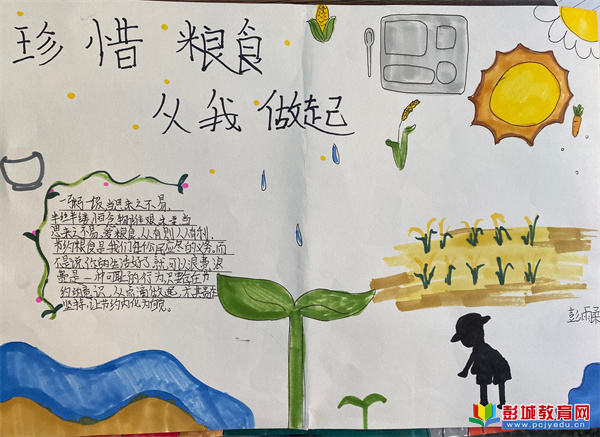 珍惜粮食
从我做起
一粥一饭当思来之不易,
半丝半缕恒念物力维艰
来之不易,爱粮食人人有利,
节约粮食是我们每个公民应尽的义务,而
不是说你的生活好了就可以浪费浪
费是一种可耻的行为只要存在
约的意识,从点滴做起,
坚持,让节约文化为
彭雨柔
彭城教育网
www.pcjyedu.cn